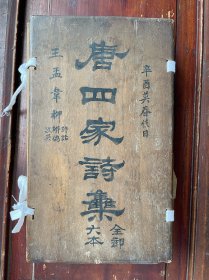 辛酉英春代日
唐四家詩集
全部
六本
王孟韋柳